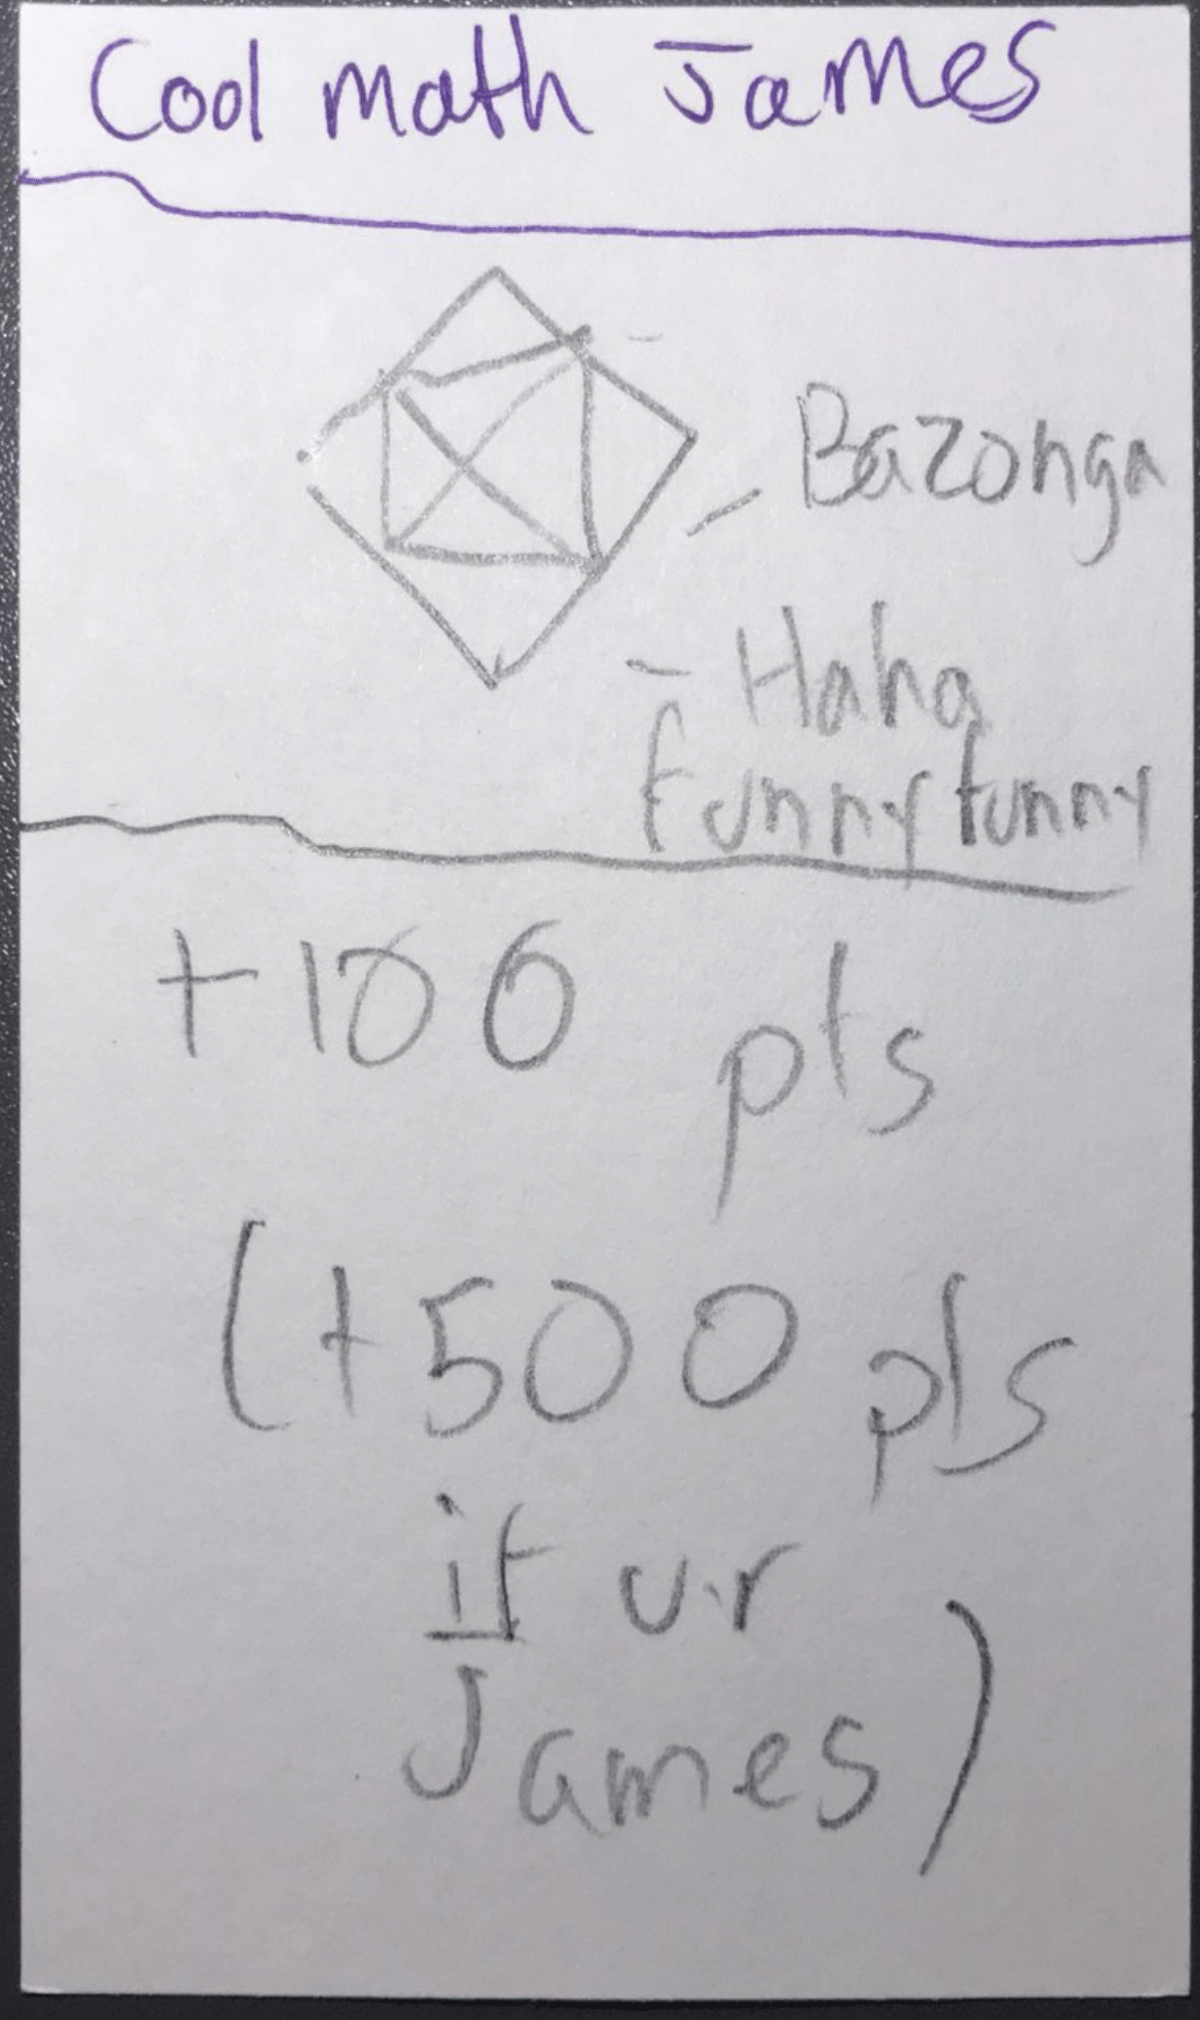 Cool math James
- Bazonga
- Haha
funny funny
+100 pts
(+500 pts
if ur
James)